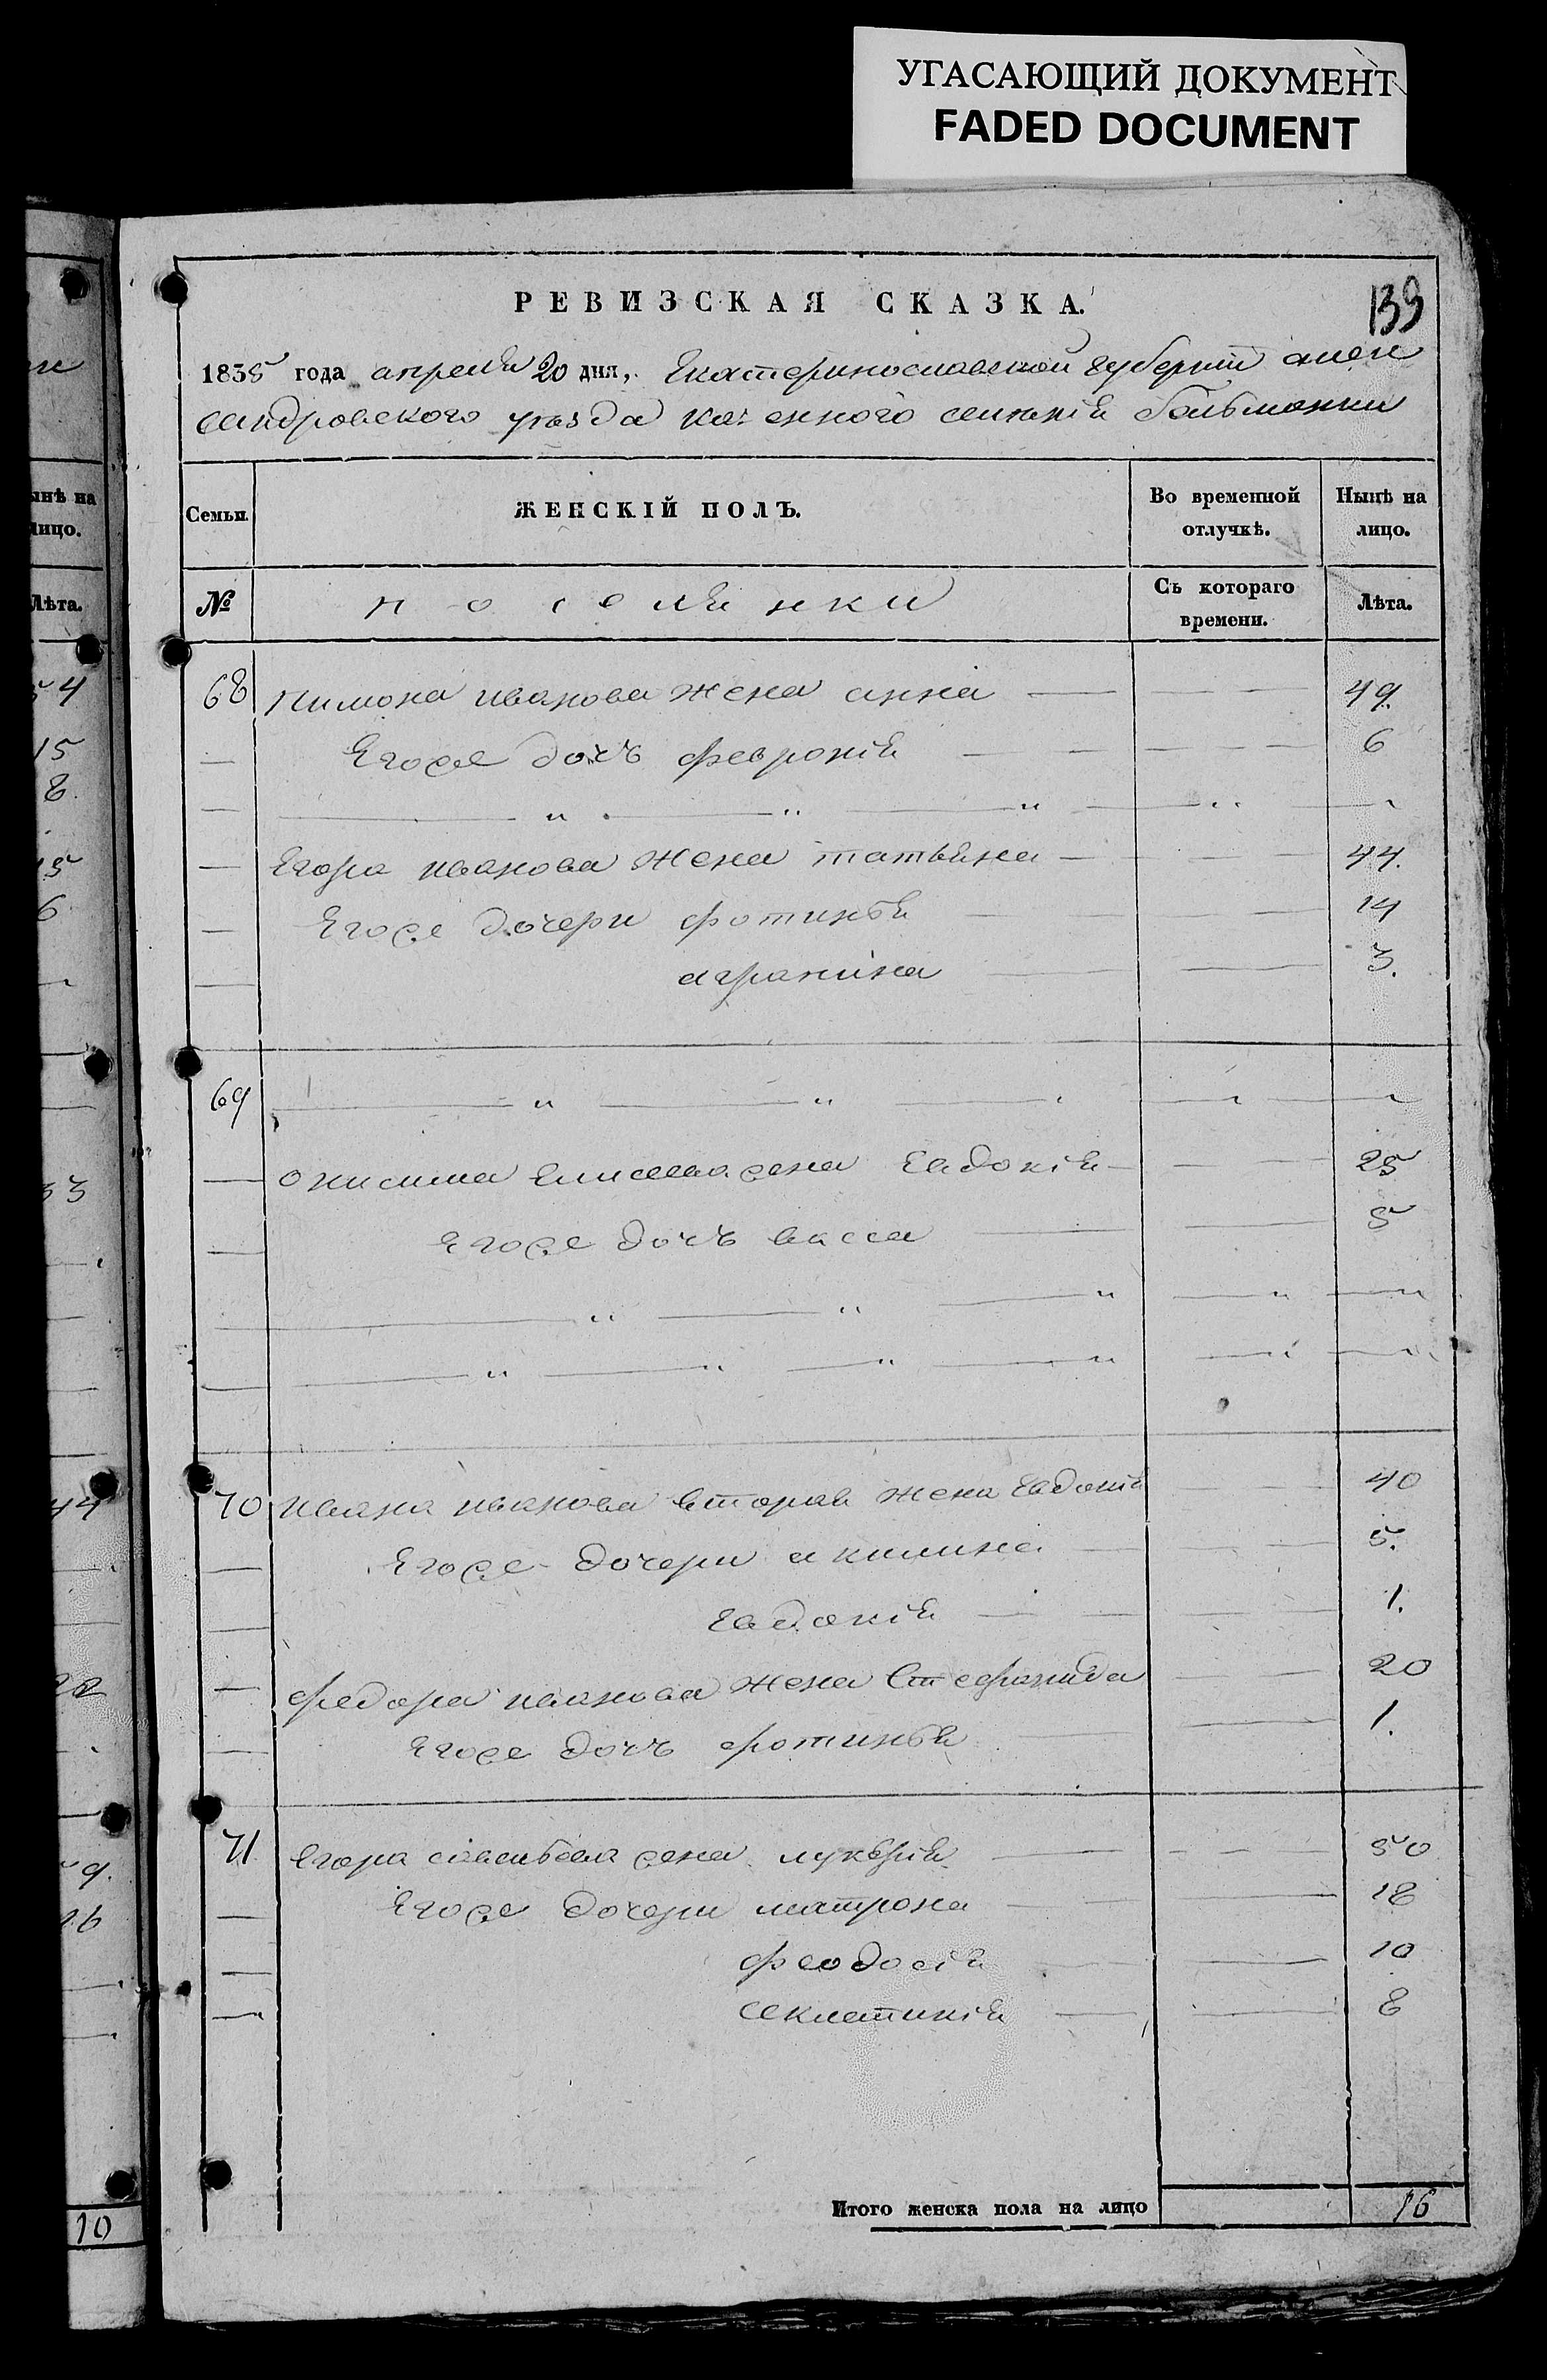 УГАСАЮЩИЙ ДОКУМЕНТ
FADED DOCUMENT
139
РЕВИЗСКАЯ СКАЗКА.
1835 года апреля 20 дня, Екатеринославской губернии алек
сандровского уезда казенного селения больманки
Семьи. ЖЕНСКІЙ ПОЛЪ. Во временной отлучкѣ. Нынѣ на лицо.
№ поселянки Съ котораго времени. Лѣта.
68 пимона иванова жена анна 49.
Егоже дочь феврония 6
Егора иванова жена татьяна 44.
Егоже дочери фотинья 14
аграпина 3.
69
онисима жена Евдокія 25
Егоже дочь васса 5
70 ивана иванова вторая жена Евдокія 40
Егоже дочери акилина 5.
Евдокія 1.
федора иванова жена Стефанида 20
Егоже дочь фотинья 1.
71 Егора савельева жена лукерія 50
Егоже дочери матрона 18
феодосія 10
секлетикія 8
Итого женска пола на лицо 16
ынѣ на
лицо.
Лѣта.
54
15
8.
15
6
33
44
22
9.
26
10